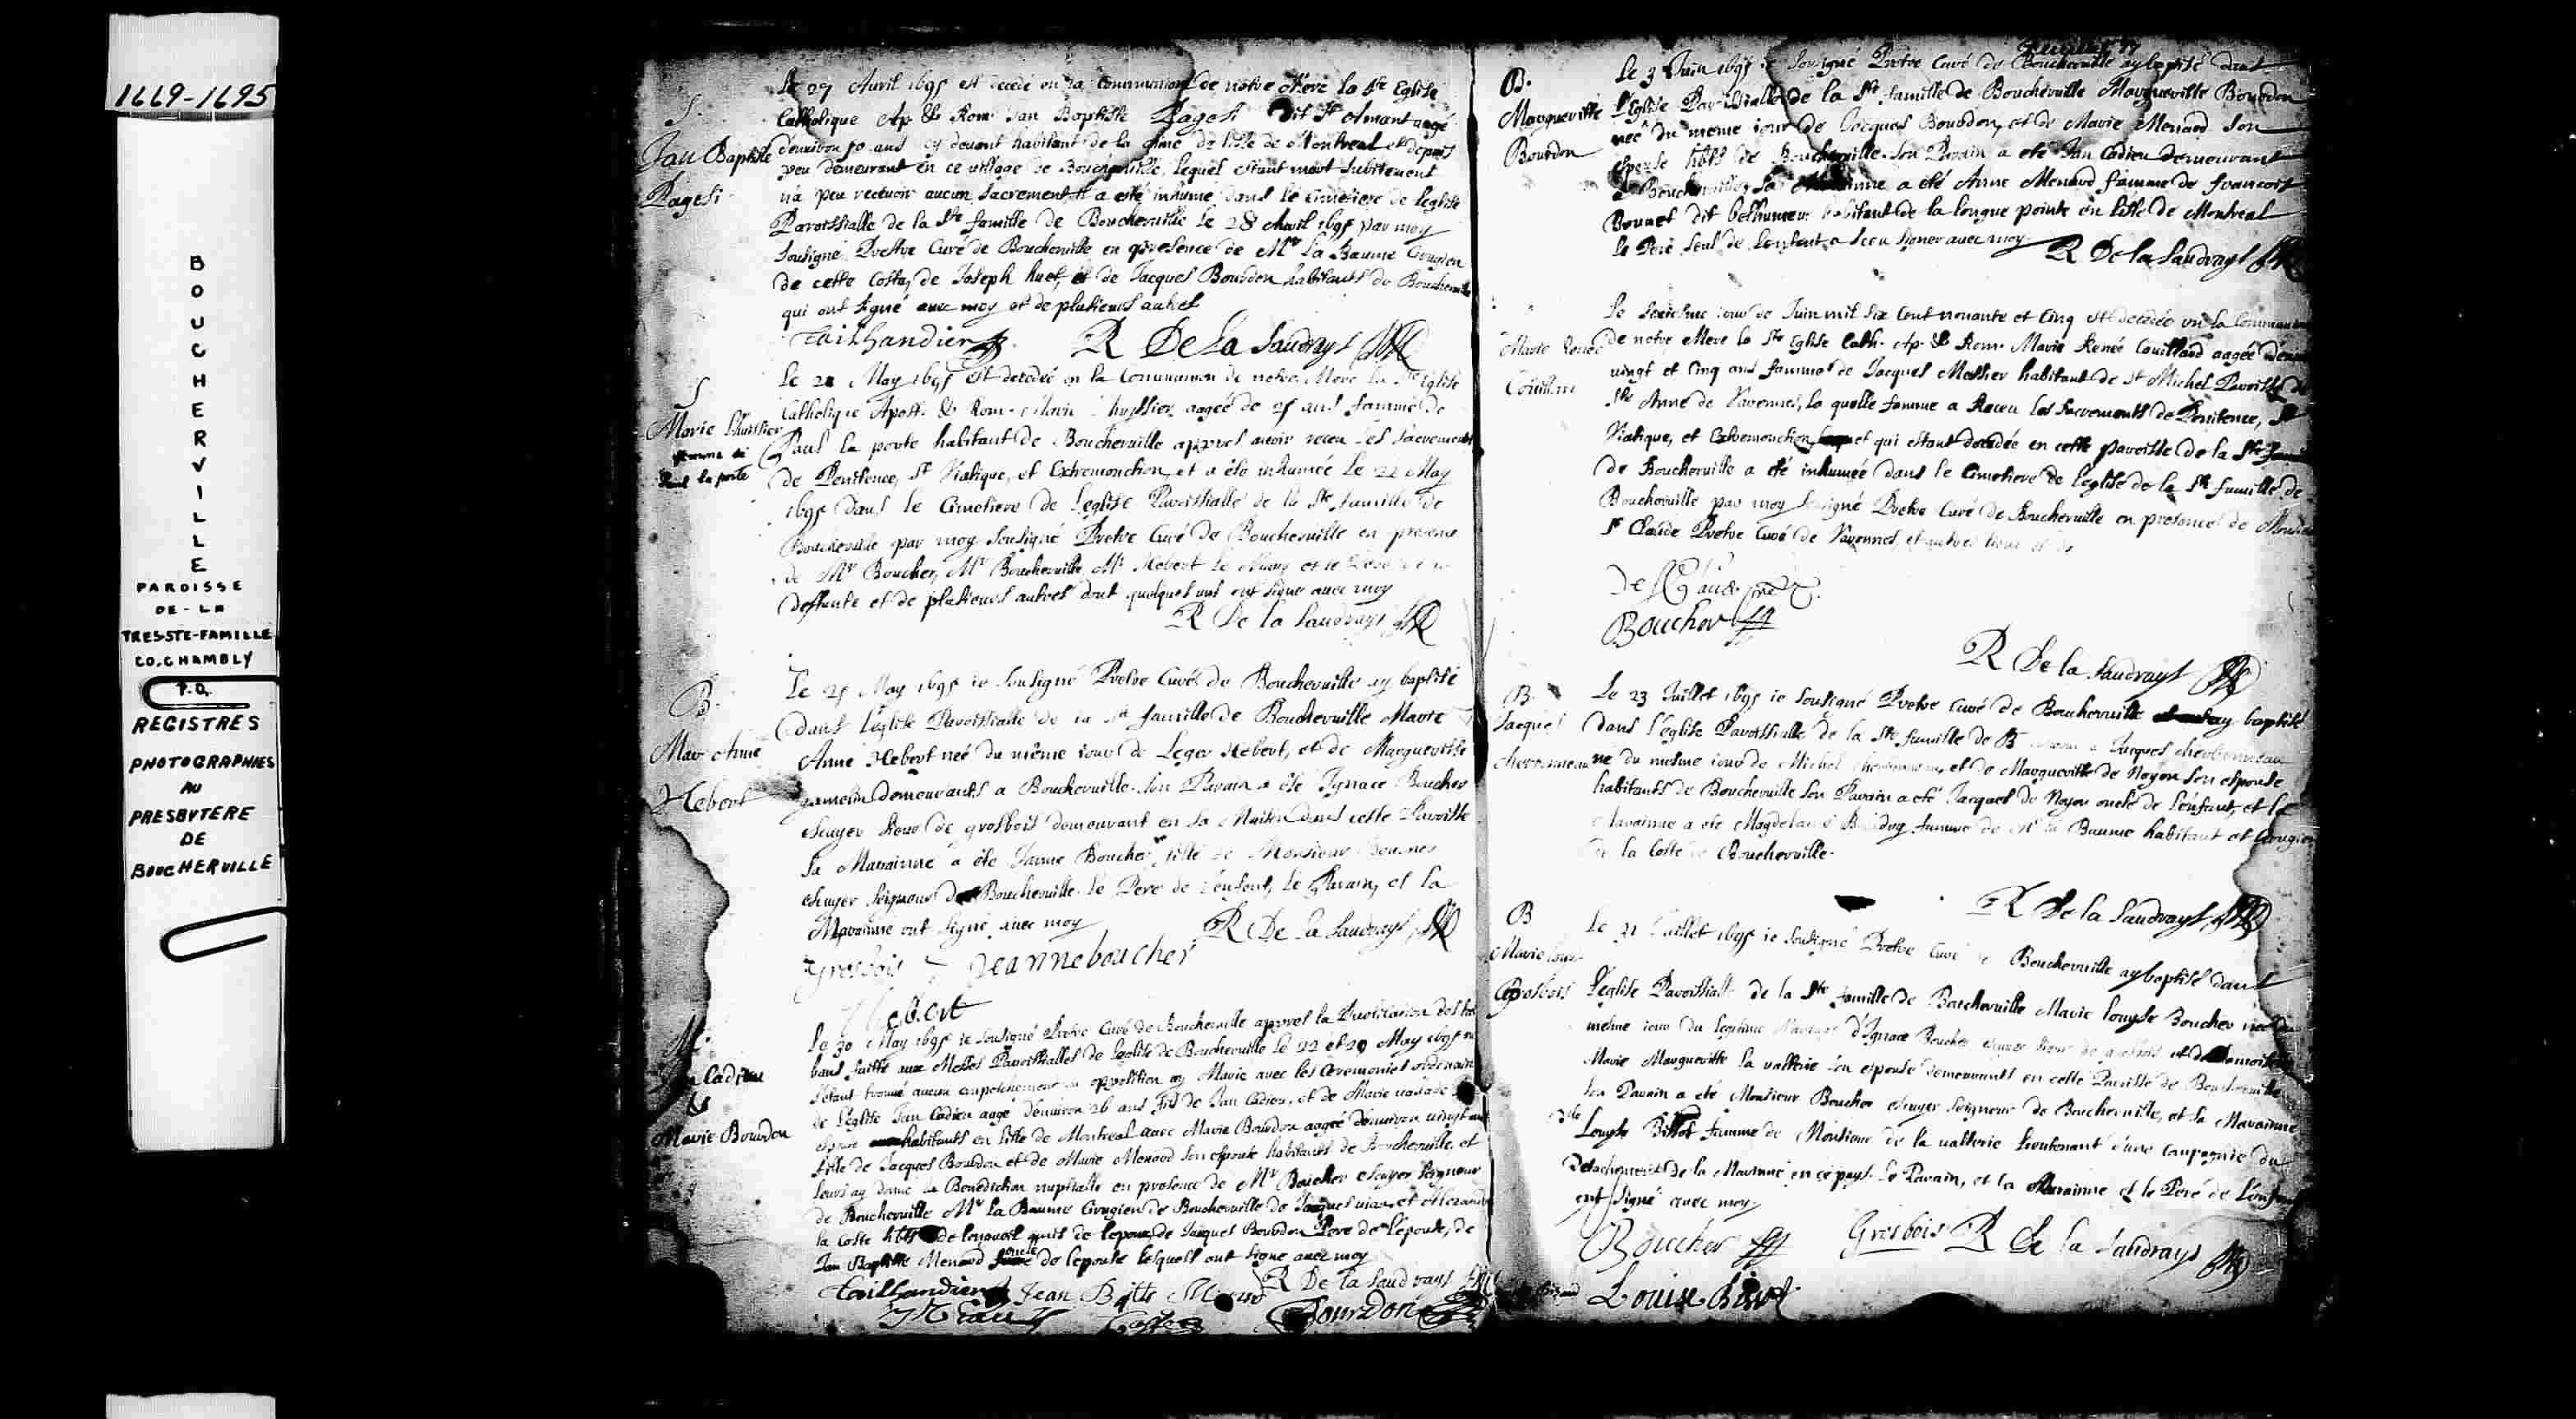 1669-1695
BOUCHERVILLE
PAROISSE
DE-LA
TRES-STE-FAMILLE
CO. CHAMBLY
P.Q.
REGISTRES
PHOTOGRAPHIES
AU
PRESBYTERE
DE
BOUCHERVILLE
S.
Jan Baptiste
Pagesi
Le 27 Avril 1695 est decedé en la Communion de notre Mere la Ste Eglise
Catholique Ap. & Rom. Jan Baptiste Pagesi dit St Amant aagé
d'environ 50 ans cy devant habitant de la de l'isle de Montreal et depuis
peu demeurant en ce village de Boucherville, lequel estant mort subitement
n'a peu recevoir aucun Sacrement. Il a esté inhumé dans le Cimetiere de l'eglise
Paroissialle de la Ste famille de Boucherville le 28 Avril 1695 par moy
sousigné Prestre Curé de Boucherville en presence de Mr La Baume Cirugien
de cette Coste, de Joseph huet, et de Jacques Bourdon habitants de Boucherville
qui ont signé avec moy et de plusieurs autres
Tailhandier R De la Saudrays
S
Marie Lhuissier
femme de
Paul la porte
Le 21 May 1695 est decedée en la Communion de notre Mere la Ste Eglise
Catholique Apost. & Rom. Marie Lhuissier aagée de ans famme de
Paul la porte habitant de Boucherville apprés avoir receu les Sacrements
de Penitence, St Viatique, et Extremonction et a été inhumée le 22 May
1695 dans le Cimetiere de l'eglise Paroissialle de la Ste famille de
Boucherville par moy sousigné Pretre Curé de Boucherville en presence
de Mr Boucher, Mr Boucherville, Mr Hebert le Mary et le Pere de la
deffunte et de plusieurs autres dont quelques uns ont signé avec moy
R De la Saudrays
B.
Mar Anne
Hebert
Le 25 May 1695 ie sousigné Pretre Curé de Boucherville ay baptisé
dans l'eglise Paroissialle de la Ste famille de Boucherville Marie
Anne Hebert neé du même iour de Leger Hebert, et de Margueritte
gamelin demeurants a Boucherville. Son Parain a ete Ignace Boucher
escuyer sieur de grosbois demeurant en sa Maison dans cette Paroisse
sa Marainne a été Janne Boucher fille de Monsieur Boucher
escuyer seigneur de Boucherville. le Pere de l'enfent, le Parain, et la
Marainne ont signé avec moy R De la Saudrays
Grosbois Jeanne boucher
Hebert
M.
Jan Cadieu
&
Marie Bourdon
Le 30 May 1695 ie sousigné Pretre Curé de Boucherville apprés la Publication des trois
bans faitte aux Messes Paroissialles de l'eglise de Boucherville le 22 et 29 May 1695 ne
s'étant trouvé aucun empeschement ou opposition ay Marié avec les Ceremonies ordinaires
de l'église Jan Cadieu aagé d'environ 26 ans fils de Jan Cadieu, et de Marie valade son
epouse habitants en l'isle de Montreal avec Marie Bourdon aageé d'environ vingt ans
fille de Jacques Bourdon et de Marie Menard son espouse habitants de Boucherville, et
leurs ay donné la Benediction nuptialle en presence de Mr Boucher escuyer seigneur
de Boucherville Mr la Baume Cirugien de Boucherville de Jacques viau, et Alexandre
la Coste hbts de longueuil amis de lepoux, de Jacques Bourdon Pere de l'epouse, de
Jan Baptiste Menard oncle de l'epouse lesquels ont signé avec moy
R De la Saudrays
Tailhandier Jean Btte Menard
Viau Bourdon
B.
Margueritte
Bourdon
Le 3 Juin 1695 ie sousigné Pretre Curé de Boucherville ay baptisé dans
l'Eglise Paroissialle de la Ste famille de Boucherville Margueritte Bourdon
neé du meme iour de Jacques Bourdon, et de Marie Menard son
epouse hbts de Boucherville. Son Parain a eté Jan Cadieu demeurant
a Boucherville, sa Marainne a été Anne Menard famme de francois
Bonnet dit bethumeur habitant de la longue pointe en l'isle de Montreal
le Pere seul de l'enfent a sceu signer avec moy R De la Saudrays
Marie Renée
Couillard
Le seizième iour de Juin mil six Cent nonante et Cinq est decedée en la Communion
de notre Mere la Ste Eglise Cath. Ap. & Rom. Marie Renée Couillard aagée d'environ
vingt et Cinq ans famme de Jacques Messier habitant de St Michel Paroisse de
Ste Anne de Varennes, la quelle famme a Receu les sacrements de Penitence, St
Viatique, et Extremonction et qui estant decedée en cette paroisse de la Ste famille
de Boucherville a été inhumée dans le Cimetiere de l'eglise de la Ste famille de
Boucherville par moy sousigné Pretre Curé de Boucherville en presence de Monsieur
St Claude Pretre Curé de Varennes, et autres
De St Claude ptre
Boucher
R De la Saudrays
B.
Jacques
Charbonneau
Le 23 Juillet 1695 ie sousigné Pretre Curé de Boucherville ay baptisé
dans l'église Paroissialle de la Ste famille de Jacques Charbonneau
né du mesme iour de Michel Charbonneau, et de Margueritte de Noyon son espouse
habitants de Boucherville son Parain a eté Jacques de Noyon oncle de l'enfant, et la
Marainne a ete Magdelaine famme de Mr la Baume habitant et Cirugien
de la Coste de Boucherville.
R De la Saudrays
B
Marie Louise
Grosbois
Le 31 Juillet 1695 ie sousigné Pretre Curé de Boucherville ay baptisé dans
l'eglise Paroissialle de la Ste famille de Boucherville Marie Louyse Boucher neé du
même iour du legitime Mariage d'Ignace Boucher escuyer sieur de grosbois et de Damoiselle
Marie Margueritte la valterie son espouse demeurants en cette Paroisse de Boucherville
Son Parain a eté Monsieur Boucher escuyer seigneur de Boucherville, et sa Marainne
Dlle Louyse Bissot famme de Monsieur de la valterie lieutenant d'une Compagnie du
Detachement de la Marinne en ce pays. le Parain, et la Marainne et le Pere de l'enfent
ont signé avec moy
Boucher Grosbois R De la Saudrays
Louise Bissot